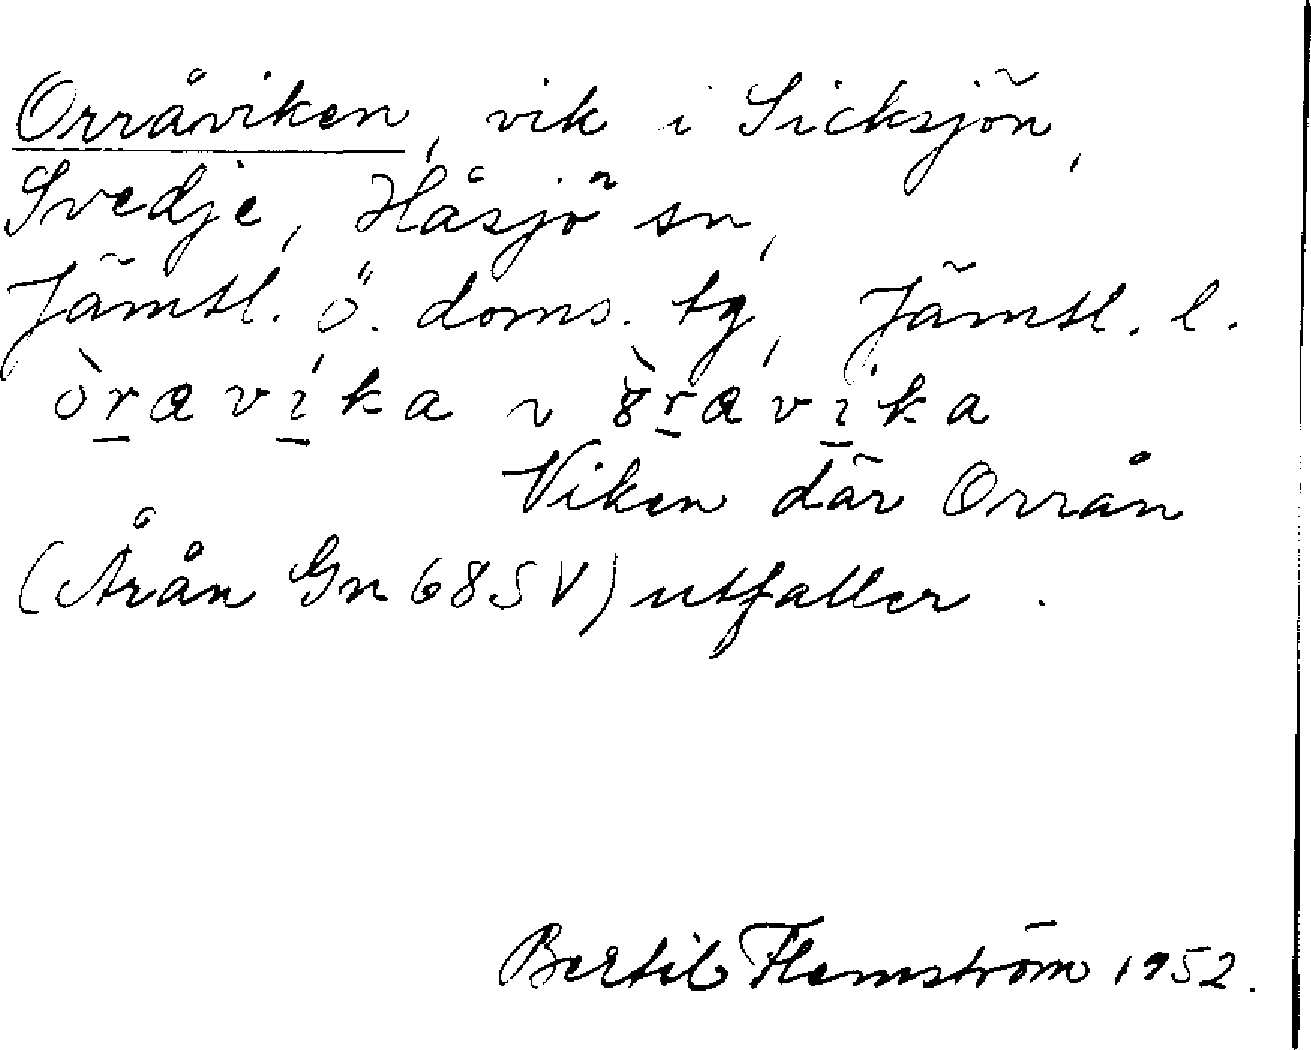 Orråviken, vik i Sicksjön,
Svedje, Håsjö sn,
Jämtl. ö. doms. tg, Jämtl. l.
òr̲ævi̲ka ~ 8̀r̲ævi̲ka
Viken där Orrån
(Årån Gn 68 SV) utfaller.
Bertil Flemström 1952.